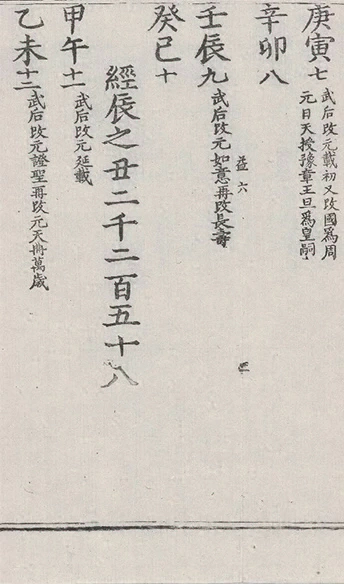 庚寅七 武后改元載初又改國爲周
元日天授豫章王旦爲皇嗣
辛卯八
壬辰九 武后改元如意再改長壽
益六
癸巳十
經辰之丑二千二百五十八
甲午十一 武后改元延載
乙未十二 武后改元證聖再改元天冊萬歲